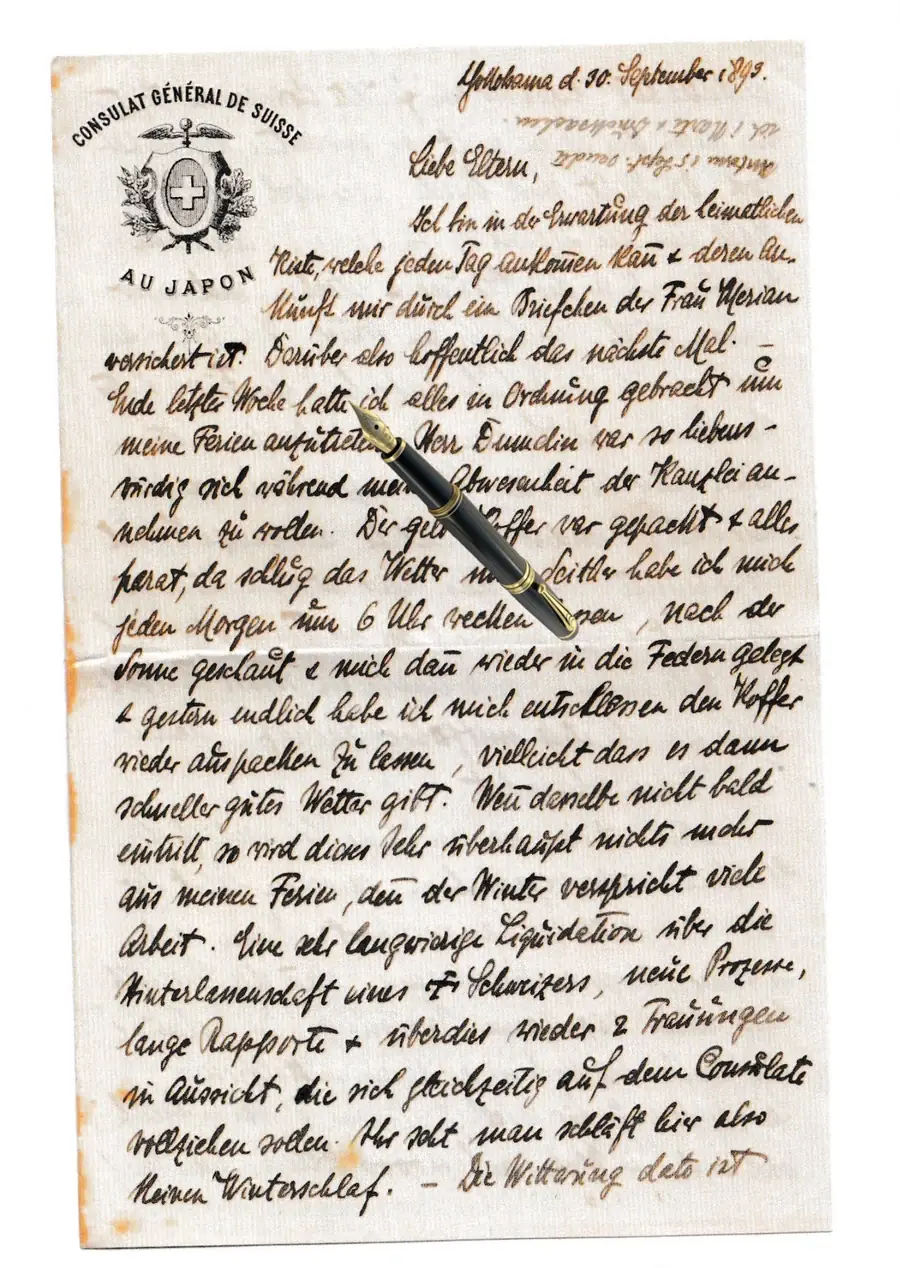 CONSULAT GÉNÉRAL DE SUISSE
AU JAPON
Yokohama d. 30. September 1893.
Liebe Eltern,
Ich bin in der Erwartung der heimatlichen
Kiste, welche jeden Tag ankom̄en kan̄ & deren An-
kunft mir durch ein Briefchen der Frau Merian
versichert ist. Darüber also hoffentlich das nächste Mal. –
Ende letzter Woche hatte ich alles in Ordnung gebracht um
meine Ferien anzutreten Herr Dumelin war so liebens-
würdig sich während Abwesenheit der Kanzlei an-
nehmen zu wollen. Der Koffer war gepackt & alles
parat, da schlug das Wetter Seither habe ich mich
jeden Morgen um 6 Uhr wecken , nach der
Sonne geschaut & mich dan̄ wieder in die Federn gelegt
& gestern endlich habe ich mich entschlossen den Koffer
wieder auspacken zu lassen, vielleicht dass es dann
schneller gutes Wetter gibt. Wen̄ dasselbe nicht bald
eintritt, so wird dieses Jahr überhaupt nichts mehr
aus meinen Ferien, den̄ der Winter verspricht viele
Arbeit. Eine sehr langwierige Liquidation über die
Hinterlassenschaft eines † Schweizers, neue Prozesse,
lange Rapporte & überdies wieder 2 Trauungen
in Aussicht, die sich gleichzeitig auf dem Consulate
vollziehen sollen. Ihr seht man schläft hier also
keinen Winterschlaf. – Die Witterung dato ist